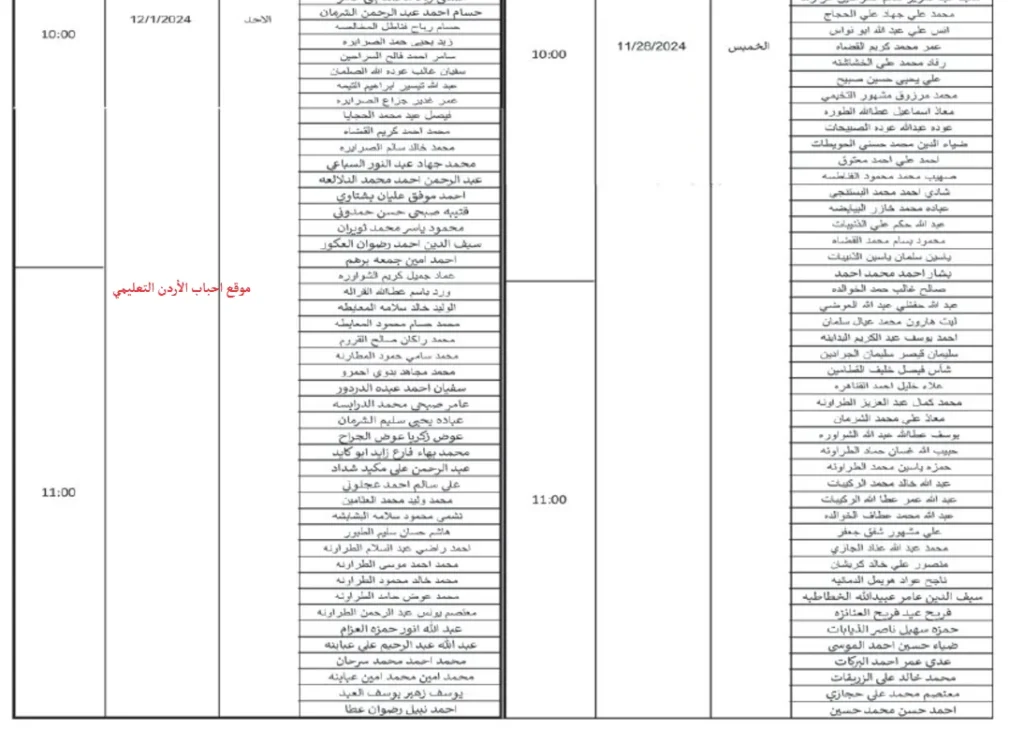 الخميس
11/28/2024
10:00
محمد علي جهاد علي الحجاج
انس علي عبد الله ابو نواس
عمر محمد كريم القضاه
رفاد محمد علي الخشاشنه
علي يحيى حسين صبيح
محمد مرزوق مشهور التخيمي
معاذ اسماعيل عطاالله الطوره
عوده عبدالله عوده الصبيحات
ضياء الدين محمد حسني الحويطات
احمد علي احمد معتوق
صهيب محمد محمود القناطسه
شادي احمد محمد البستنجي
عباده محمد خازر البيايضه
عبد الله حكم علي الذنيبات
محمود بسام محمد القضاه
ياسين سلمان ياسين الذنيبات
بشار احمد محمد احمد
صالح غالب حمد الخوالده
عبد الله حفتلي عبد الله العرضي
ليث هارون محمد عيال سلمان
احمد يوسف عبد الكريم البداينه
سليمان قيصر سليمان الجرادين
شأس فيصل خليف القطامين
علاء خليل احمد القناهره
محمد كمال عبد العزيز الطراونه
معاذ علي محمد الشرمان
يوسف عطاالله عبد الله الشواوره
حبيب الله غسان حماد الطراونه
حمزه ياسين محمد الطراونه
عبد الله خالد محمد الركيبات
عبد الله عمر عطا الله الركيبات
عبد الله محمد عطاف الخوالده
علي مشهور شفق جعفر
محمد عبد الله عناد الجازي
منصور علي خالد كريشان
ناجح عواد هويمل الدمانيه
سيف الدين عامر عبيدالله الخطاطبه
فريح عيد فريح العنانزه
حمزه سهيل ناصر الذيابات
ضياء حسين احمد الموسى
عدي عمر احمد البركات
محمد خالد علي الزريقات
معتصم محمد علي حجازي
احمد حسن محمد حسين
11:00
الاحد
12/1/2024
10:00
حسام احمد عبد الرحمن الشرمان
حسام رباح فناطل المخالسه
زيد يحيى حمد الصرايره
سامر احمد فالح السراحين
سفيان غالب عوده الله الصلمان
عبد الله تيسير ابراهيم القيمه
عمر غدير جزاع الصرايره
فيصل عيد محمد الحجايا
محمد احمد كريم القضاه
محمد خالد سالم الصرايره
محمد جهاد عبد النور السباعي
عبد الرحمن احمد محمد الدلالعه
احمد موفق عليان بشتاوي
قتيبه صبحي حسن حمدوني
محمود ياسر محمد نويران
سيف الدين احمد رضوان العكور
احمد امين جمعه برهم
عماد جميل كريم الشواوره
ورد باسم عطاالله القراله
الوليد خالد سلامه المعايطه
محمد حسام محمود المعايطه
محمد راكان صالح القروم
محمد سامي حمود المطارنه
محمد مجاهد بدوي احمرو
سفيان احمد عبده الدردور
عامر صبحي محمد الدرابسه
عباده يحيى سليم الشرمان
عوض زكريا عوض الجراح
محمد بهاء فارع زايد ابو كايد
عبد الرحمن علي مكيد شداد
علي سالم احمد عجلوني
محمد وليد محمد العثامين
نشمي محمود سلامه البشابشه
هاشم حسان سليم الطيور
احمد راضي عبد السلام الطراونه
محمد احمد موسى الطراونه
محمد خالد محمود الطراونه
محمد عوض حامد الطراونه
معتصم يونس عبد الرحمن الطراونه
عبد الله انور حمزه العزام
عبد الله عبد الرحيم علي عبابنه
محمد احمد محمد سرحان
محمد امين محمد امين عبابنه
يوسف زهير يوسف العبد
احمد نبيل رضوان عطا
11:00
موقع احباب الأردن التعليمي